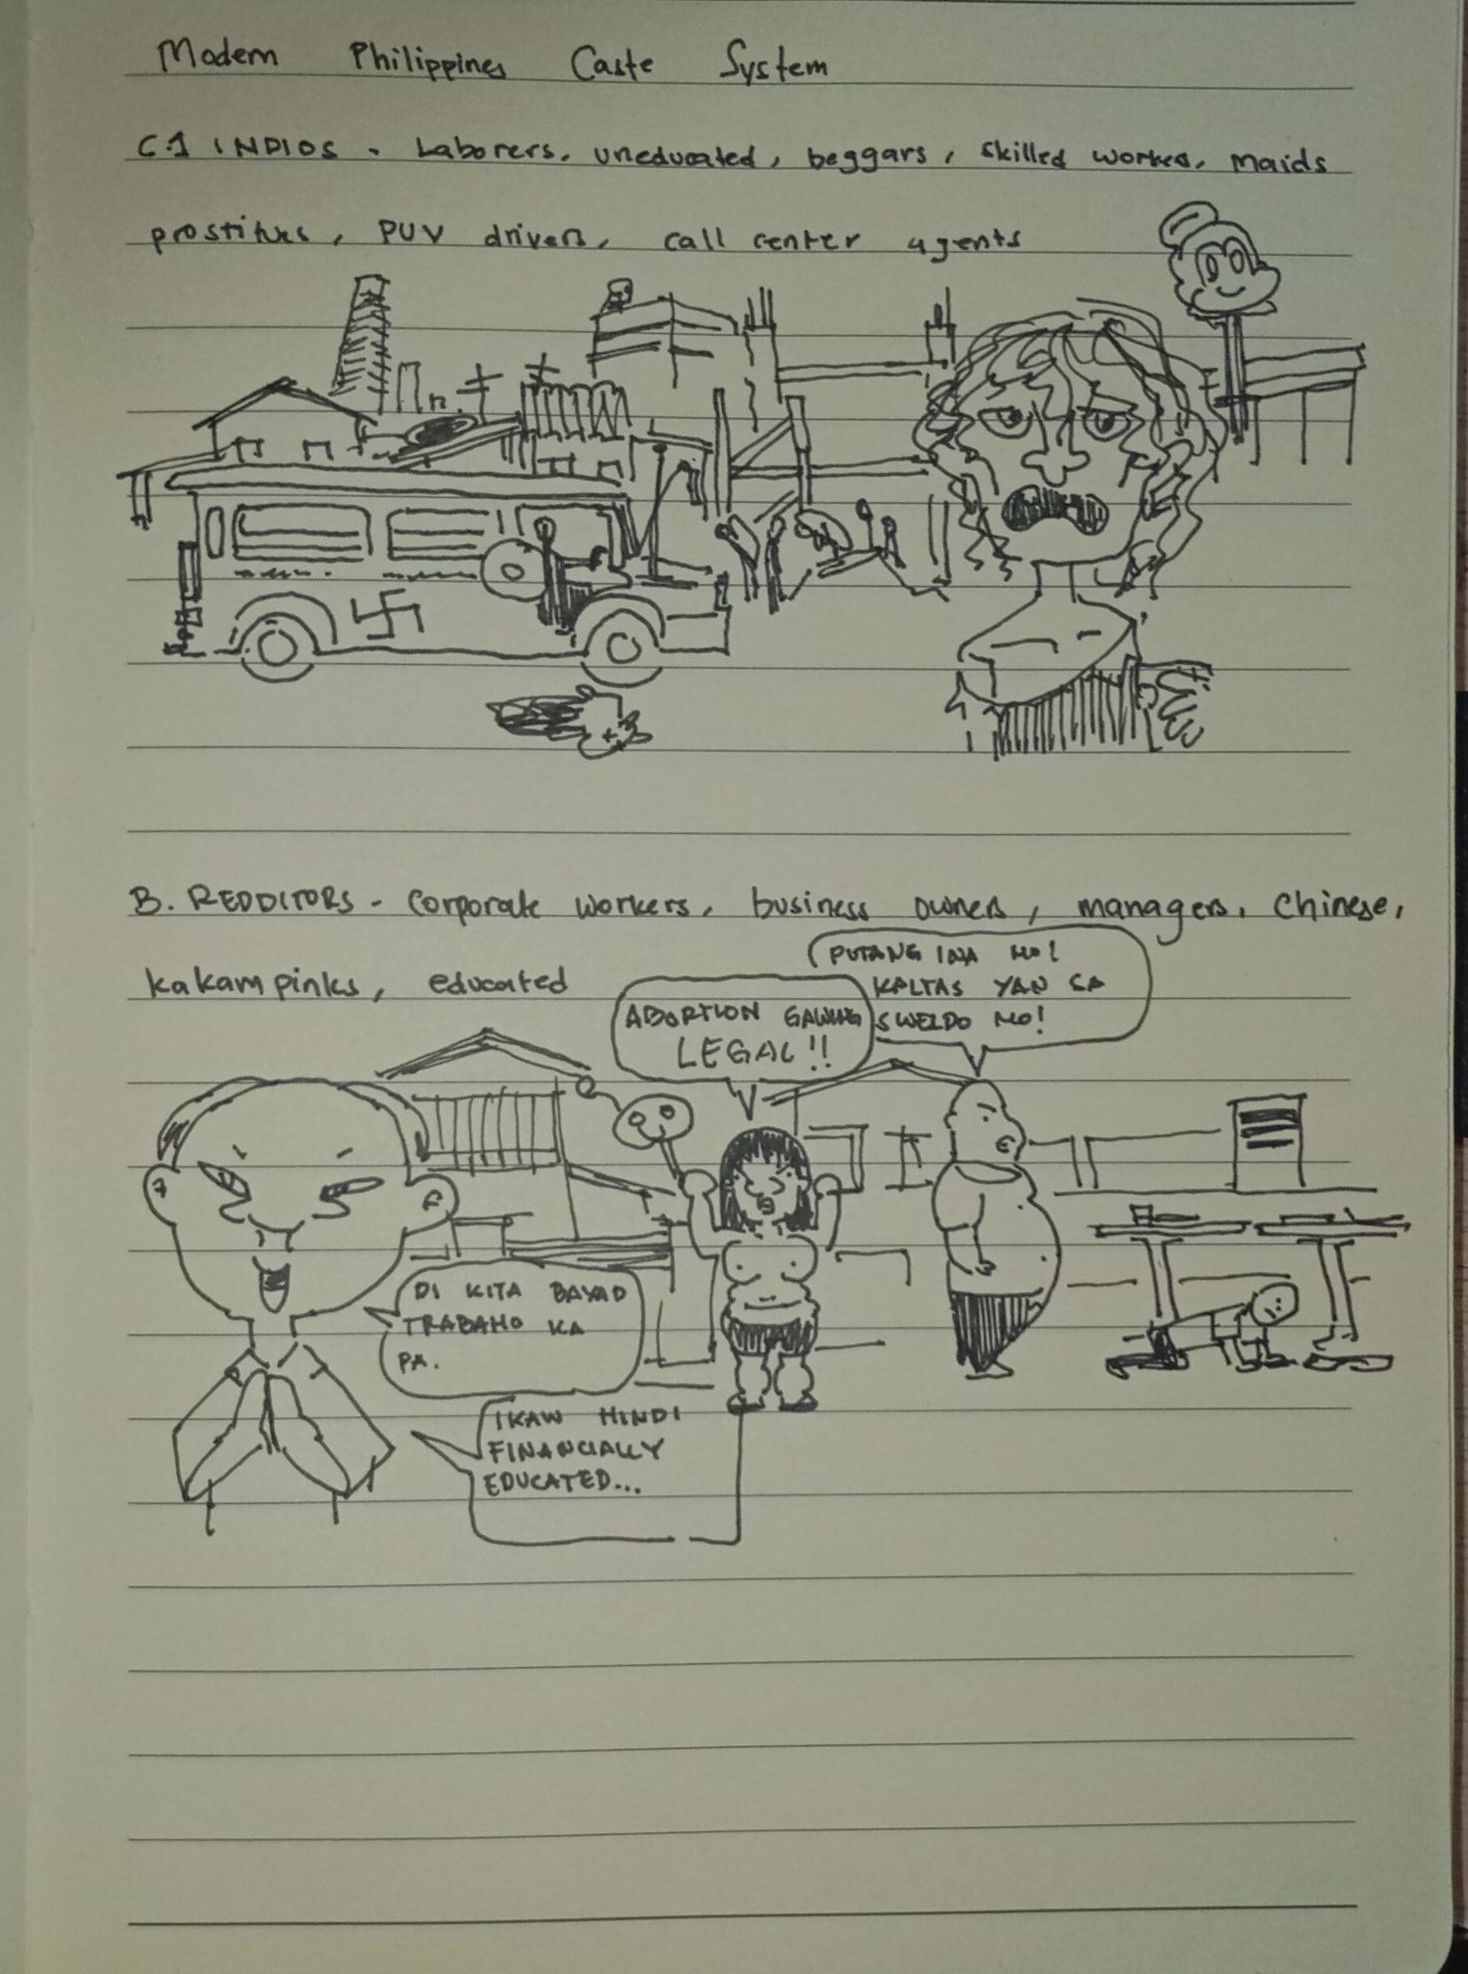 Modern Philippines Caste System
C.1 INDIOS - Laborers, uneducated, beggars, skilled workers, maids
prostitutes, PUV drivers, call center agents
B. REDDITORS - Corporate workers, business owners, managers, Chinese,
kakampinks, educated
PUTANG INA MO!
KALTAS YAN SA
SWELDO MO!
ABORTION GAWING
LEGAL!!
DI KITA BAYAD
TRABAHO KA
PA.
IKAW HINDI
FINANCIALLY
EDUCATED...